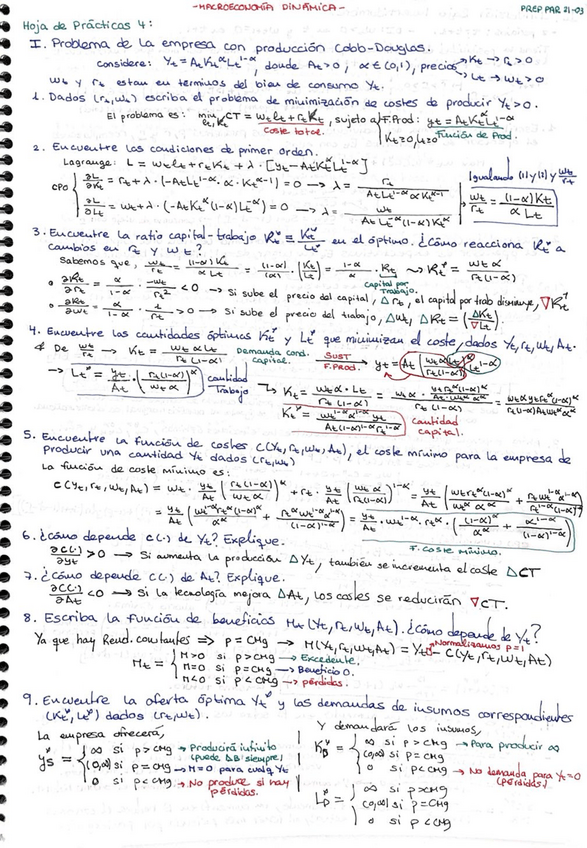 -MACROECONOMÍA DINÁMICA-
PREP PAR 21-03
Hoja de Prácticas 4:
I. Problema de la empresa con producción Cobb-Douglas.
considere: Yt = At Kt^α Lt^1-α, donde At>0, α ∈ (0,1), precios → Kt → rt > 0
→ Lt → wt > 0
wt y rt estan en terminos del bien de consumo Yt.
1. Dados (rt, wt) escriba el problema de minimización de costes de producir Yt>0.
El problema es: min Lt,Kt CT = wt Lt + rt Kt, sujeto a/F.Prod: yt = At Kt^α Lt^1-α
Coste total. Función de Prod.
Kt≥0, Lt≥0
2. Encuentre las condiciones de primer orden.
Lagrange: L = wt Lt + rt Kt + λ · [yt - At Kt^α Lt^1-α]
CPO { ∂L/∂Kt = rt + λ · (-At Lt^1-α · α · Kt^α-1) = 0 → λ = rt / At Lt^1-α α Kt^α-1
∂L/∂Lt = wt + λ · (-At Kt^α (1-α) Lt^-α) = 0 → λ = wt / At Lt^-α (1-α) Kt^α
Igualando (1) y (2) y wt/rt
wt/rt = (1-α) Kt / α Lt
3. Encuentre la ratio capital-trabajo kt* = Kt*/Lt* en el óptimo. ¿Cómo reacciona kt* a
cambios en rt y wt?
Sabemos que, wt/rt = (1-α) Kt / α Lt = (1-α)/(α) · (Kt/Lt) = 1-α/α · kt ⤳ kt* = wt α / rt (1-α)
capital por trabajo.
• ∂kt/∂rt = α/1-α · -wt/rt² < 0 → Si sube el precio del capital, Δrt, el capital por trab disminuye, ∇kt*
• ∂kt/∂wt = α/1-α · 1/rt > 0 → Si sube el precio del trabajo, Δwt, Δkt = (ΔKt/∇Lt)
4. Encuentre las cantidades óptimas Kt* y Lt* que minimizan el coste, dados Yt, rt, wt, At.
De wt/rt → Kt = wt α Lt / rt (1-α) Demanda cond. capital. SUST F.PROD. → yt = At (wt α Lt / rt (1-α))^α Lt^1-α
→ Lt* = yt/At · (rt (1-α) / wt α)^α cantidad Trabajo
Cantidad capital.
5. Encuentre la función de costes C(Yt, rt, wt, At), el coste mínimo para la empresa de
producir una cantidad Yt dados (rt, wt)
La función de coste mínimo es:
F. coste mínimo.
6. ¿cómo depende c(·) de Yt? Explique.
∂C(·)/∂yt > 0 → Si aumenta la producción ΔYt, también se incrementa el coste ΔCT
7. ¿cómo depende C(·) de At? Explique.
∂C(·)/∂At < 0 → Si la tecnología mejora ΔAt, los costes se reducirán ∇CT.
8. Escriba la función de beneficios Πt (Yt, rt, wt, At). ¿Cómo depende de Yt?
Ya que hay Rend. constantes ⇒ p = CMg → Π(Yt, rt, wt, At) = Yt - C(Yt, rt, wt, At)
Normalizamos p=1
Πt = { Π>0 si p>CMg → Excedente.
Π=0 si p=CMg → Beneficio 0.
Π<0 si p<CMg → pérdidas.
9. Encuentre la oferta óptima Yt* y las demandas de insumos correspondientes
(Kt*, Lt*) dados (rt, wt).
La empresa ofrecerá,
ys* = { ∞ si p>CMg → Producirá infinito (puede ΔB siempre)
(0,∞) si p=CMg → Π=0 para cualq Yt
0 si p<CMg → No produce si hay pérdidas.
Y demandará los insumos,
KD* = { ∞ si p>CMg → Para producir ∞
(0,∞) si p=CMg
0 si p<CMg → No demanda para Yt=0 (pérdidas)
LD* = { ∞ si p>CMg
(0,∞) si p=CMg
0 si p<CMg